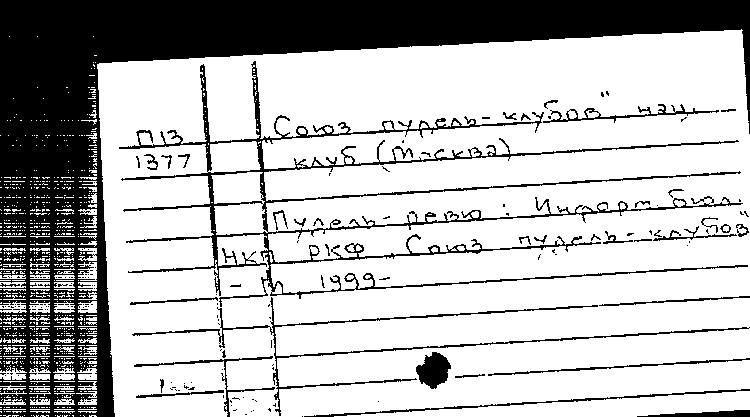 П13
1377
„Союз пудель-клубов", нац.
клуб (Москва)
Пудель-ревю: Информ. бюл.
НКП РКФ „Союз пудель-клубов"
- М, 1999-